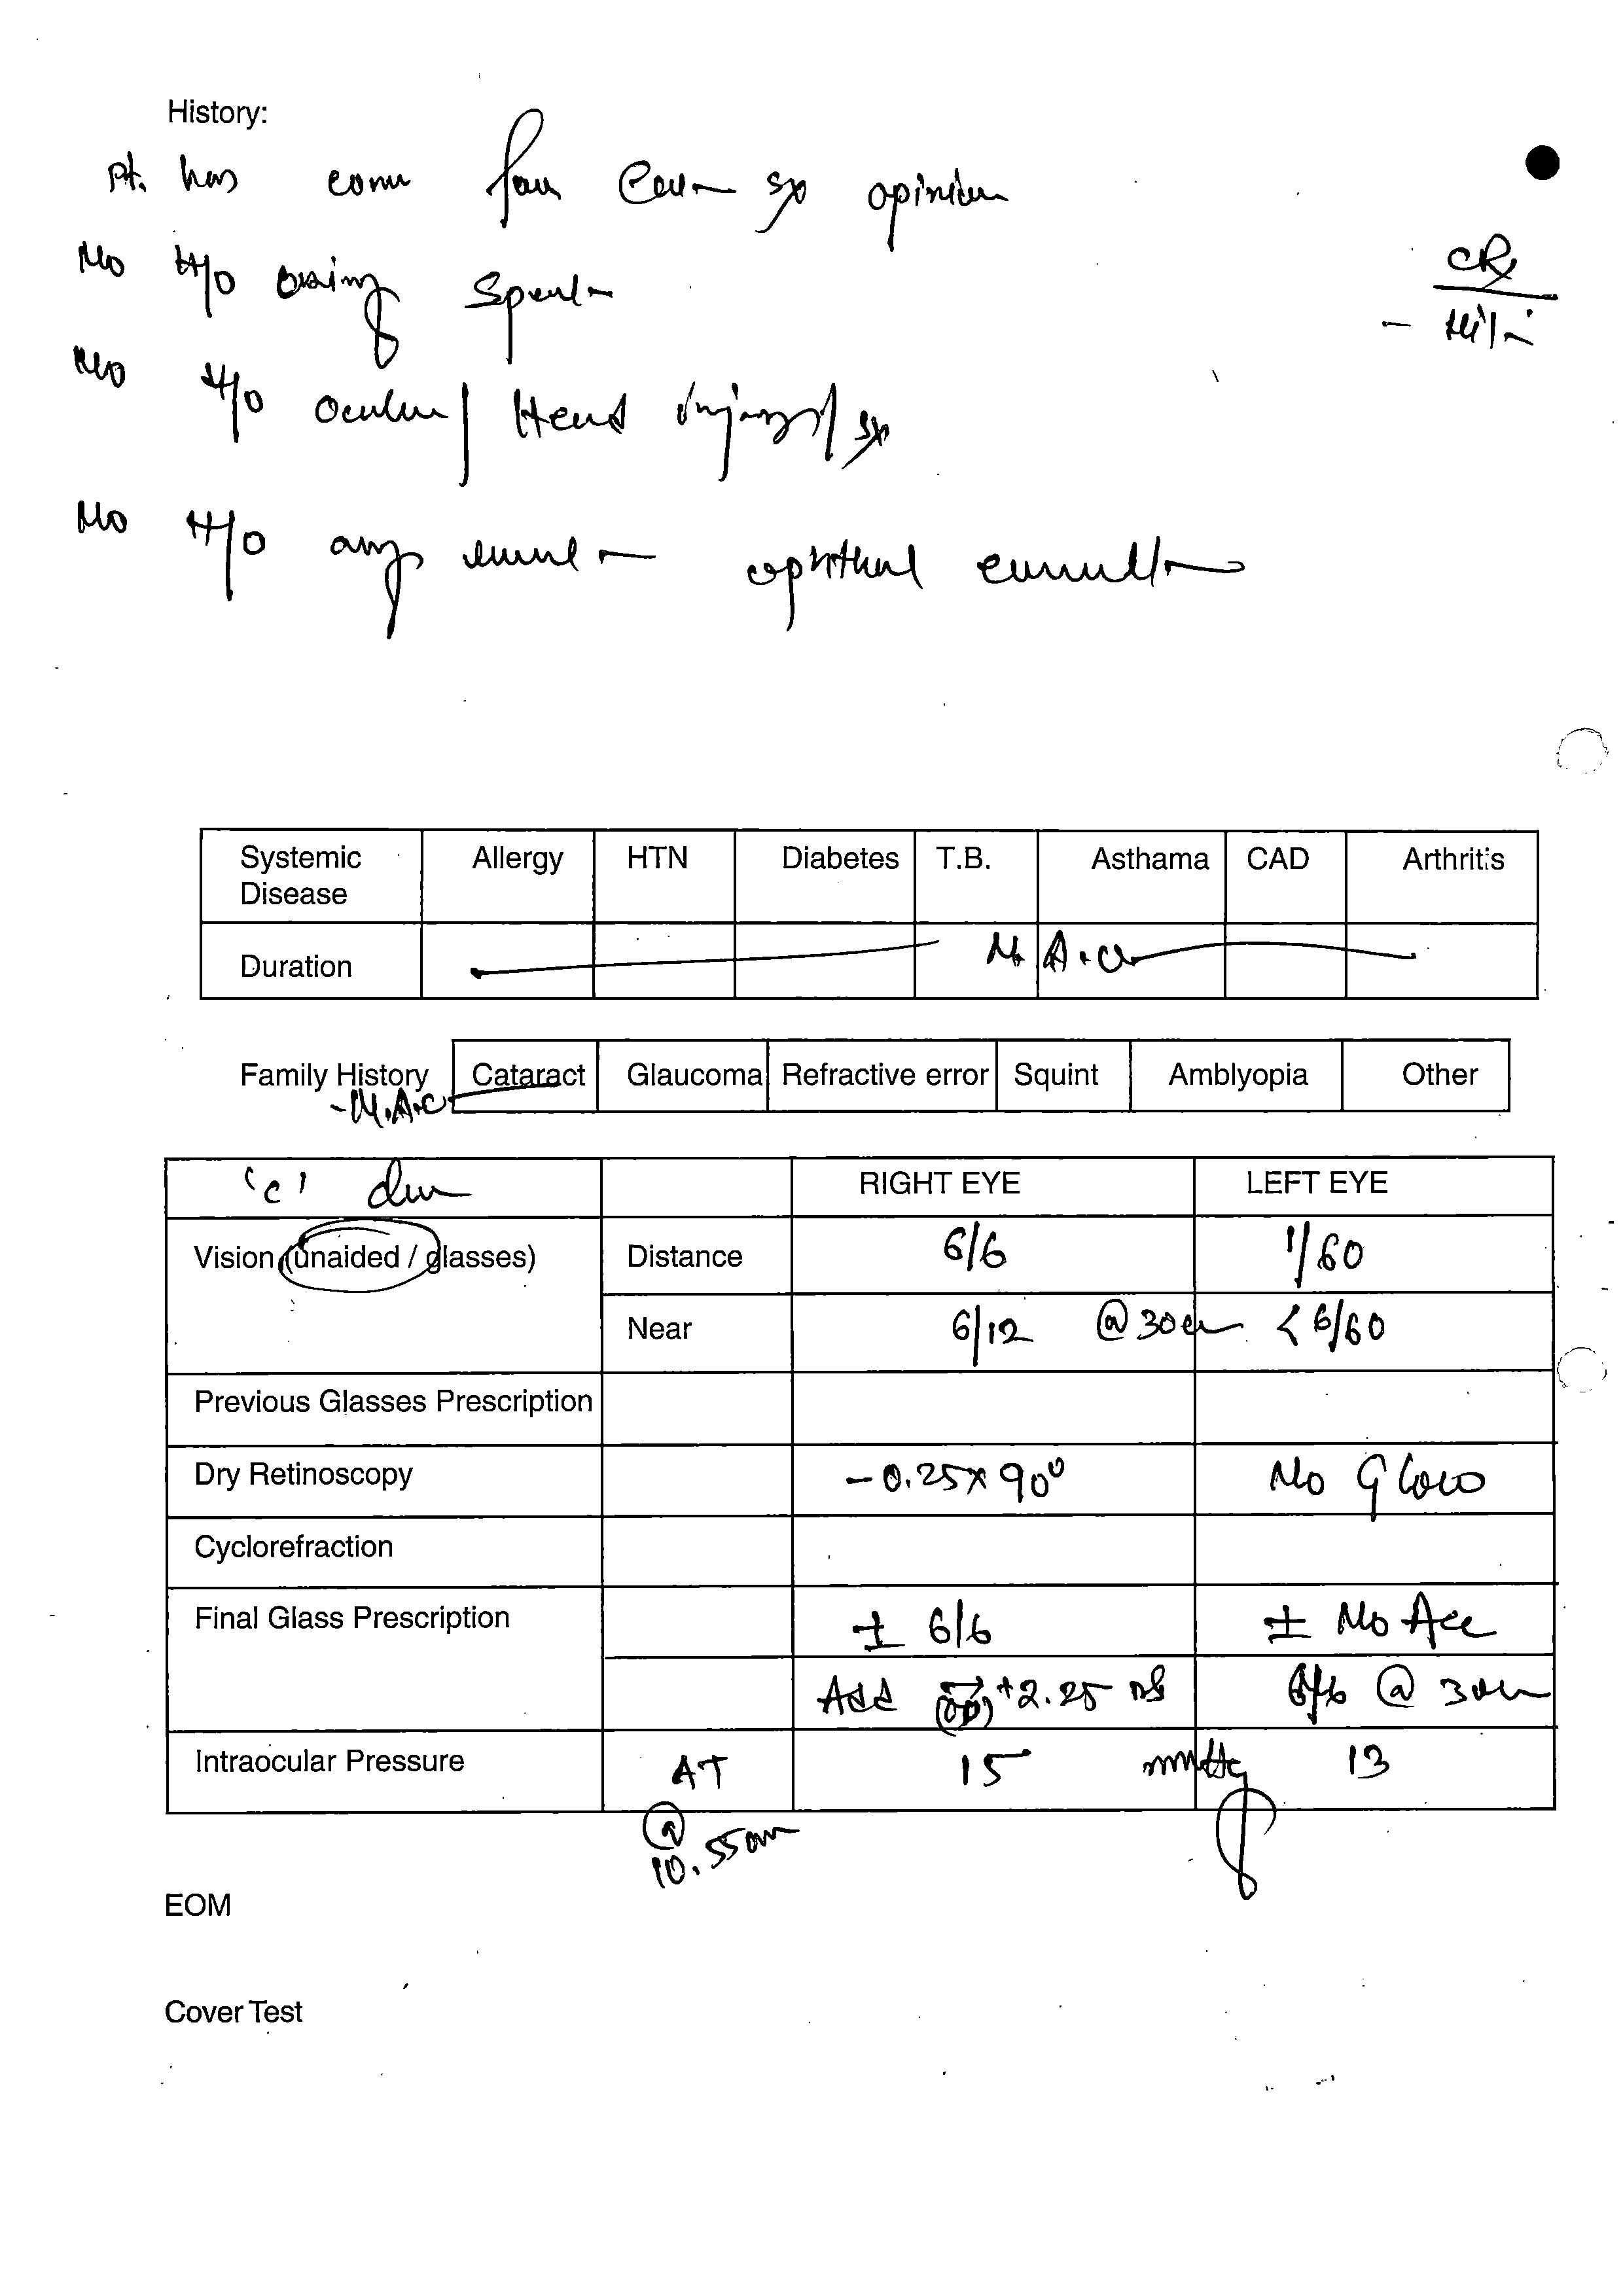 History:
Pt. has come for sx opinion
CRx
No H/O using
- Nil
No H/O Ocular / Head injury / sx
No H/O any ophthal
Systemic Disease Allergy HTN Diabetes T.B. Asthama CAD Arthritis
Duration N.A.C
Family History Cataract Glaucoma Refractive error Squint Amblyopia Other
- N.A.C
'c' RIGHT EYE LEFT EYE
Vision (unaided / glasses) Distance 6/6 1/60
Near 6/12 @ 30cm < 6/60
Previous Glasses Prescription
Dry Retinoscopy - 0.25 x 90° No Glow
Cyclorefraction
Final Glass Prescription ± 6/6 ± No Acc
Add (OD) +2.25 DS 6/6 @ 30cm
Intraocular Pressure AT 15 mmHg 13
@ 10.55am
EOM
Cover Test